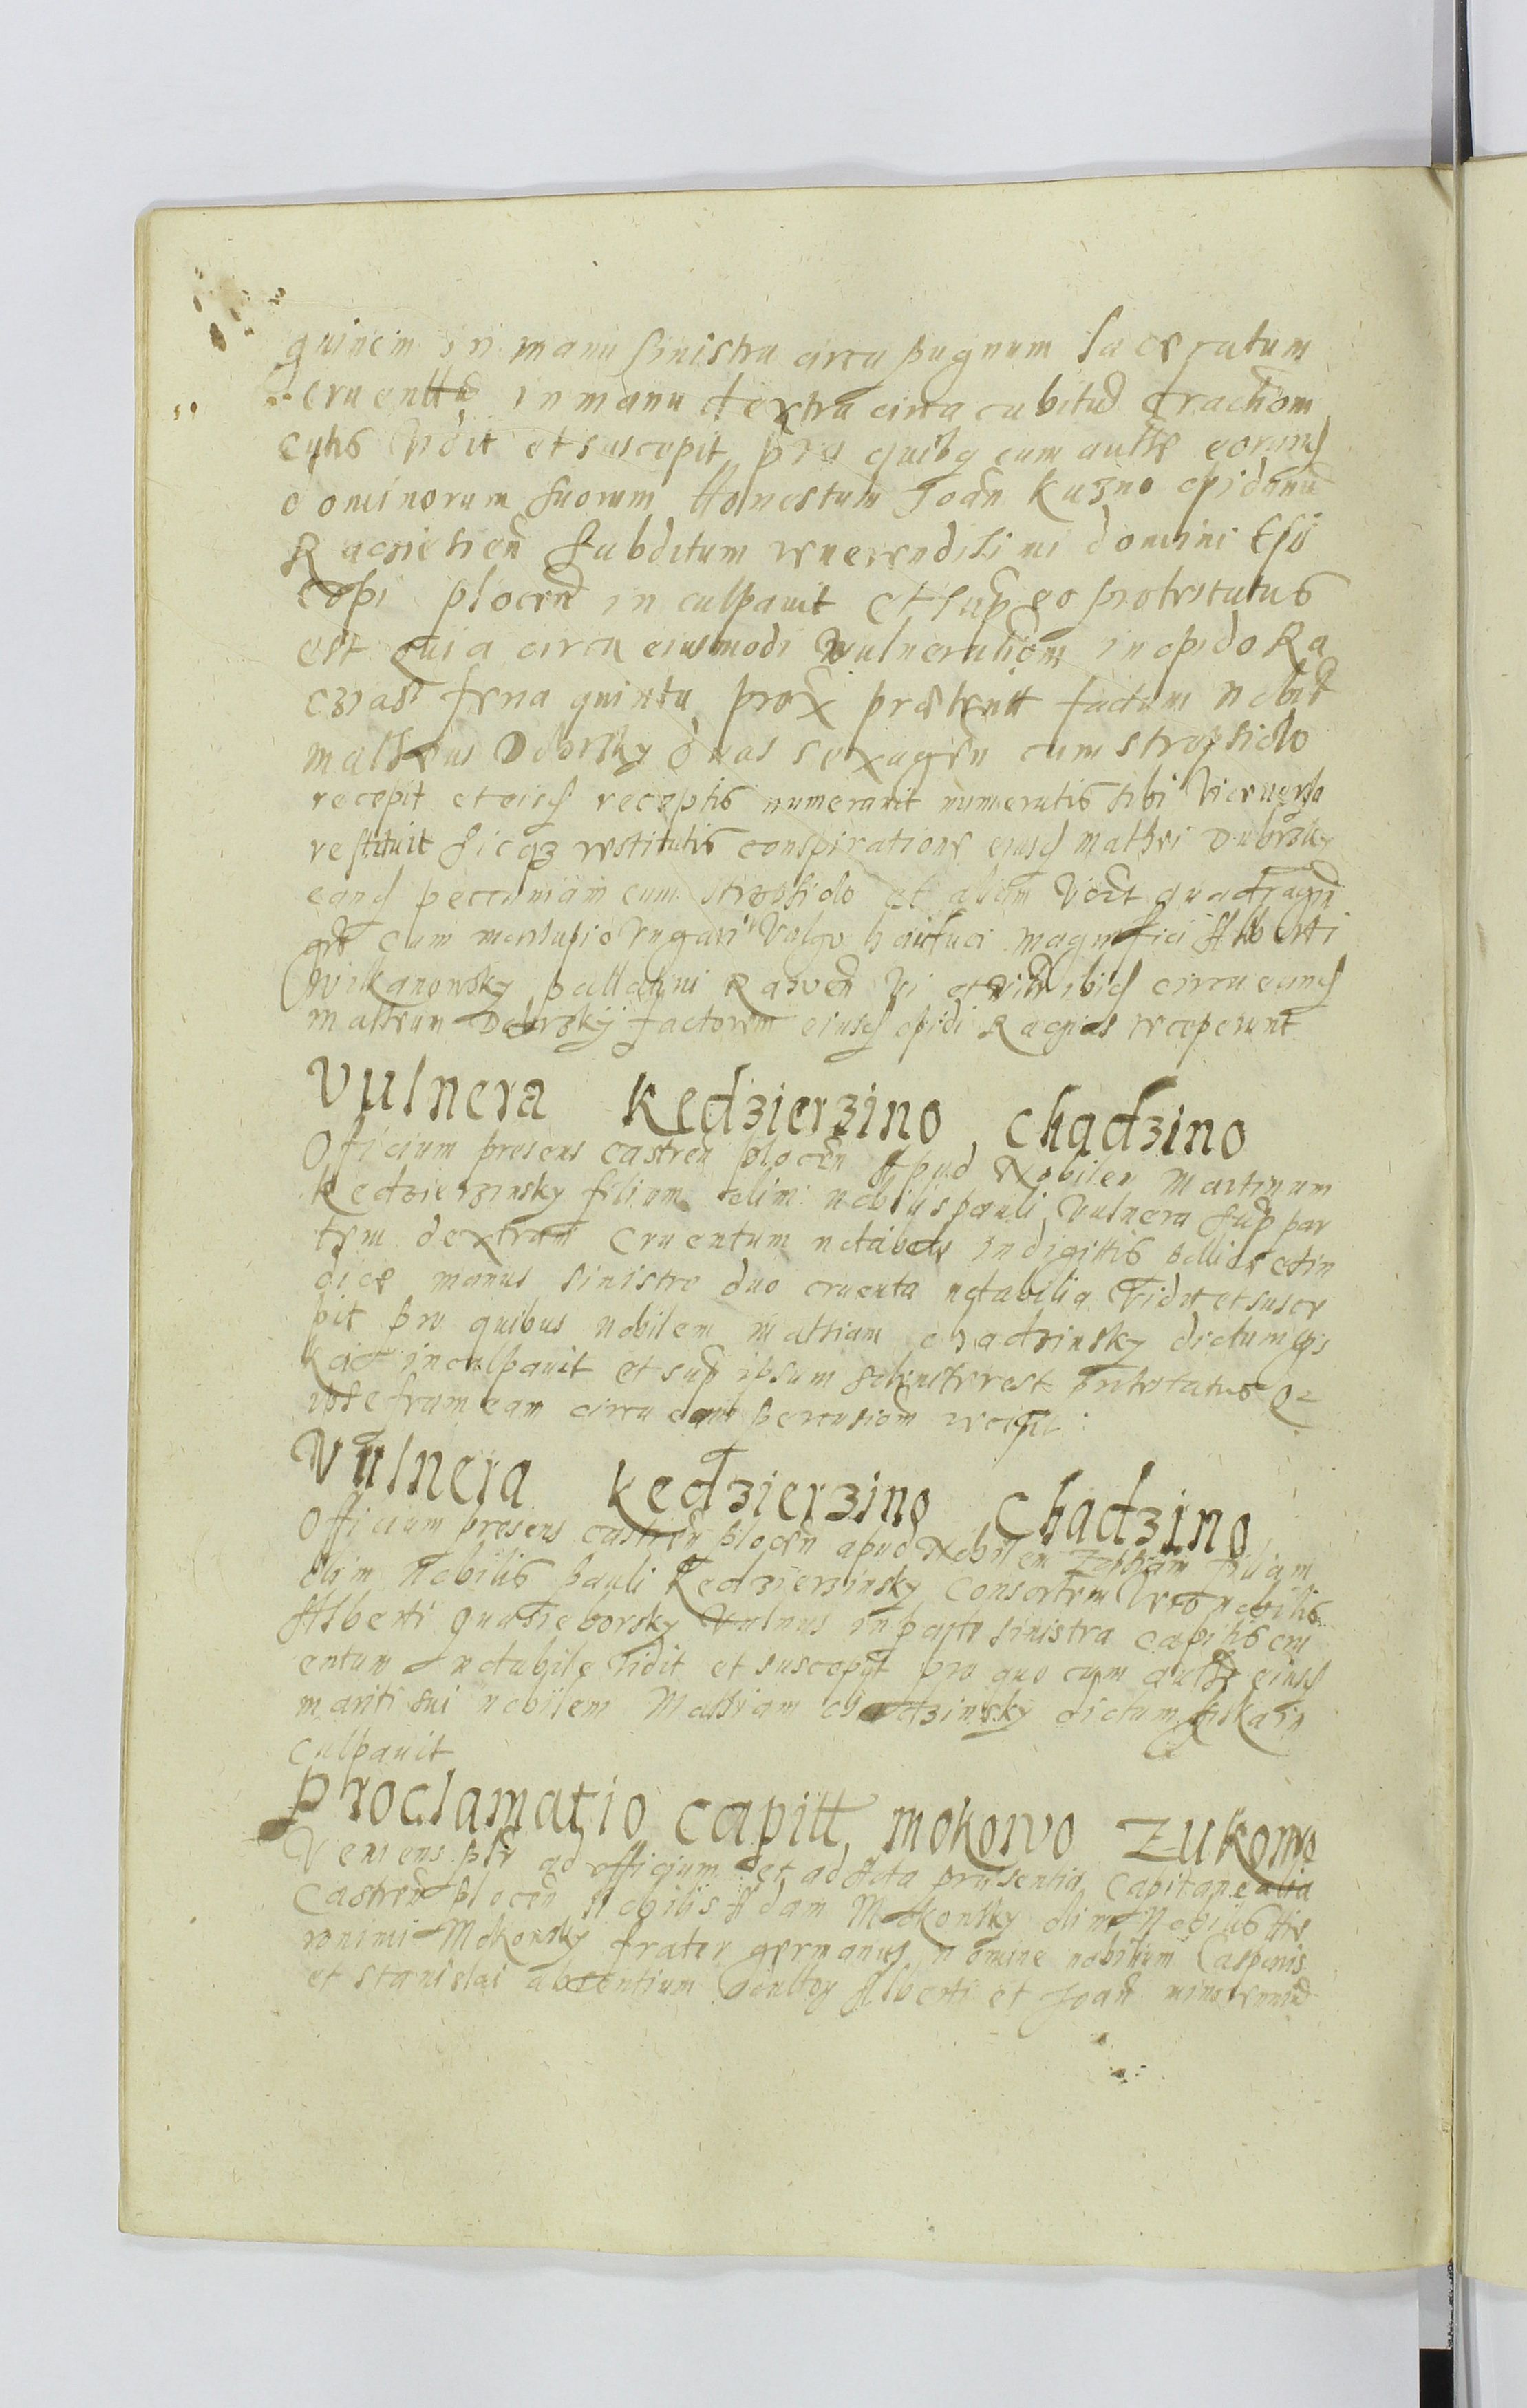 quinem in manu sinistra circa pugnum laceratum
cruentũ in manu dextra circa cubitũ fractiom
cutis vidit et suscepit pro quibq cum aultr eorund
dominorum suorum Honestum Joañ Kuzno opidanũ
Raczieheñ subditum reuerendisimi domini Epi
copi ploceñ inculpauit et sup eo protestatus
est quia circa eiusmodi vulneratiom in opido Ra
czias feria quinta prox preterit factam Nobil
matheus Dobrsky duas sexagen cum stropholo
recepit et eisd receptis numerauit numeratis sibi viceuersa
restituit sicqz restitutis conspiratione eiusd mathei Dubrsky
eand peccuniam cum strophiolo et aliam quadragin
cum marsupio Ungari vulgo magnifici Alberti
Wilkanowsky pallatini Raween vi et ibid circa eund
matheum Dobrsky factorem eiusd opidi Raczias receperunt
Vulnera Kedzierzino chadzino
Officium presens castreñ ploceñ Apud Nobilem Martinum
Kedzierzinsky filium olim nobilis pauli vulnera sup par
tem dextram cruentum notabile in digittis et in
dice manus sinistre duo cruenta notabilia vidit et susce
pit pro quibus nobilem mathiam chadzinsky dictum
inculpauit et sup ipsum soleniter est protestatus Q
ipse frameam circa eam percusiom recepit
Vulnera kedzierzino Chadzino
Officium presens castreñ ploceñ apud Nobilem Zophiam filiam
olim Nobilis pauli Kedzierzinsky Consortem vero nobilis
Alberti Gnasieborsky vulnus in parte sinistra capitis cru
entum notabile vidit et suscepit pro quo cum aultr eiusd
mariti sui nobilem Mathiam chadzinsky dictum in
culpauit
Proclamatio capitt mokowo Zukowo
Veniens plr ad officium et ad Acta presentia Capitanealia
Castreñ ploceñ Nobilis Adam Mokowsky olim Nobilis Hie
ronimi Mokowsky frater germanus nomine nobilium Casparis
et stanislai absentium adultor Alberti et Joañ minorenniũ